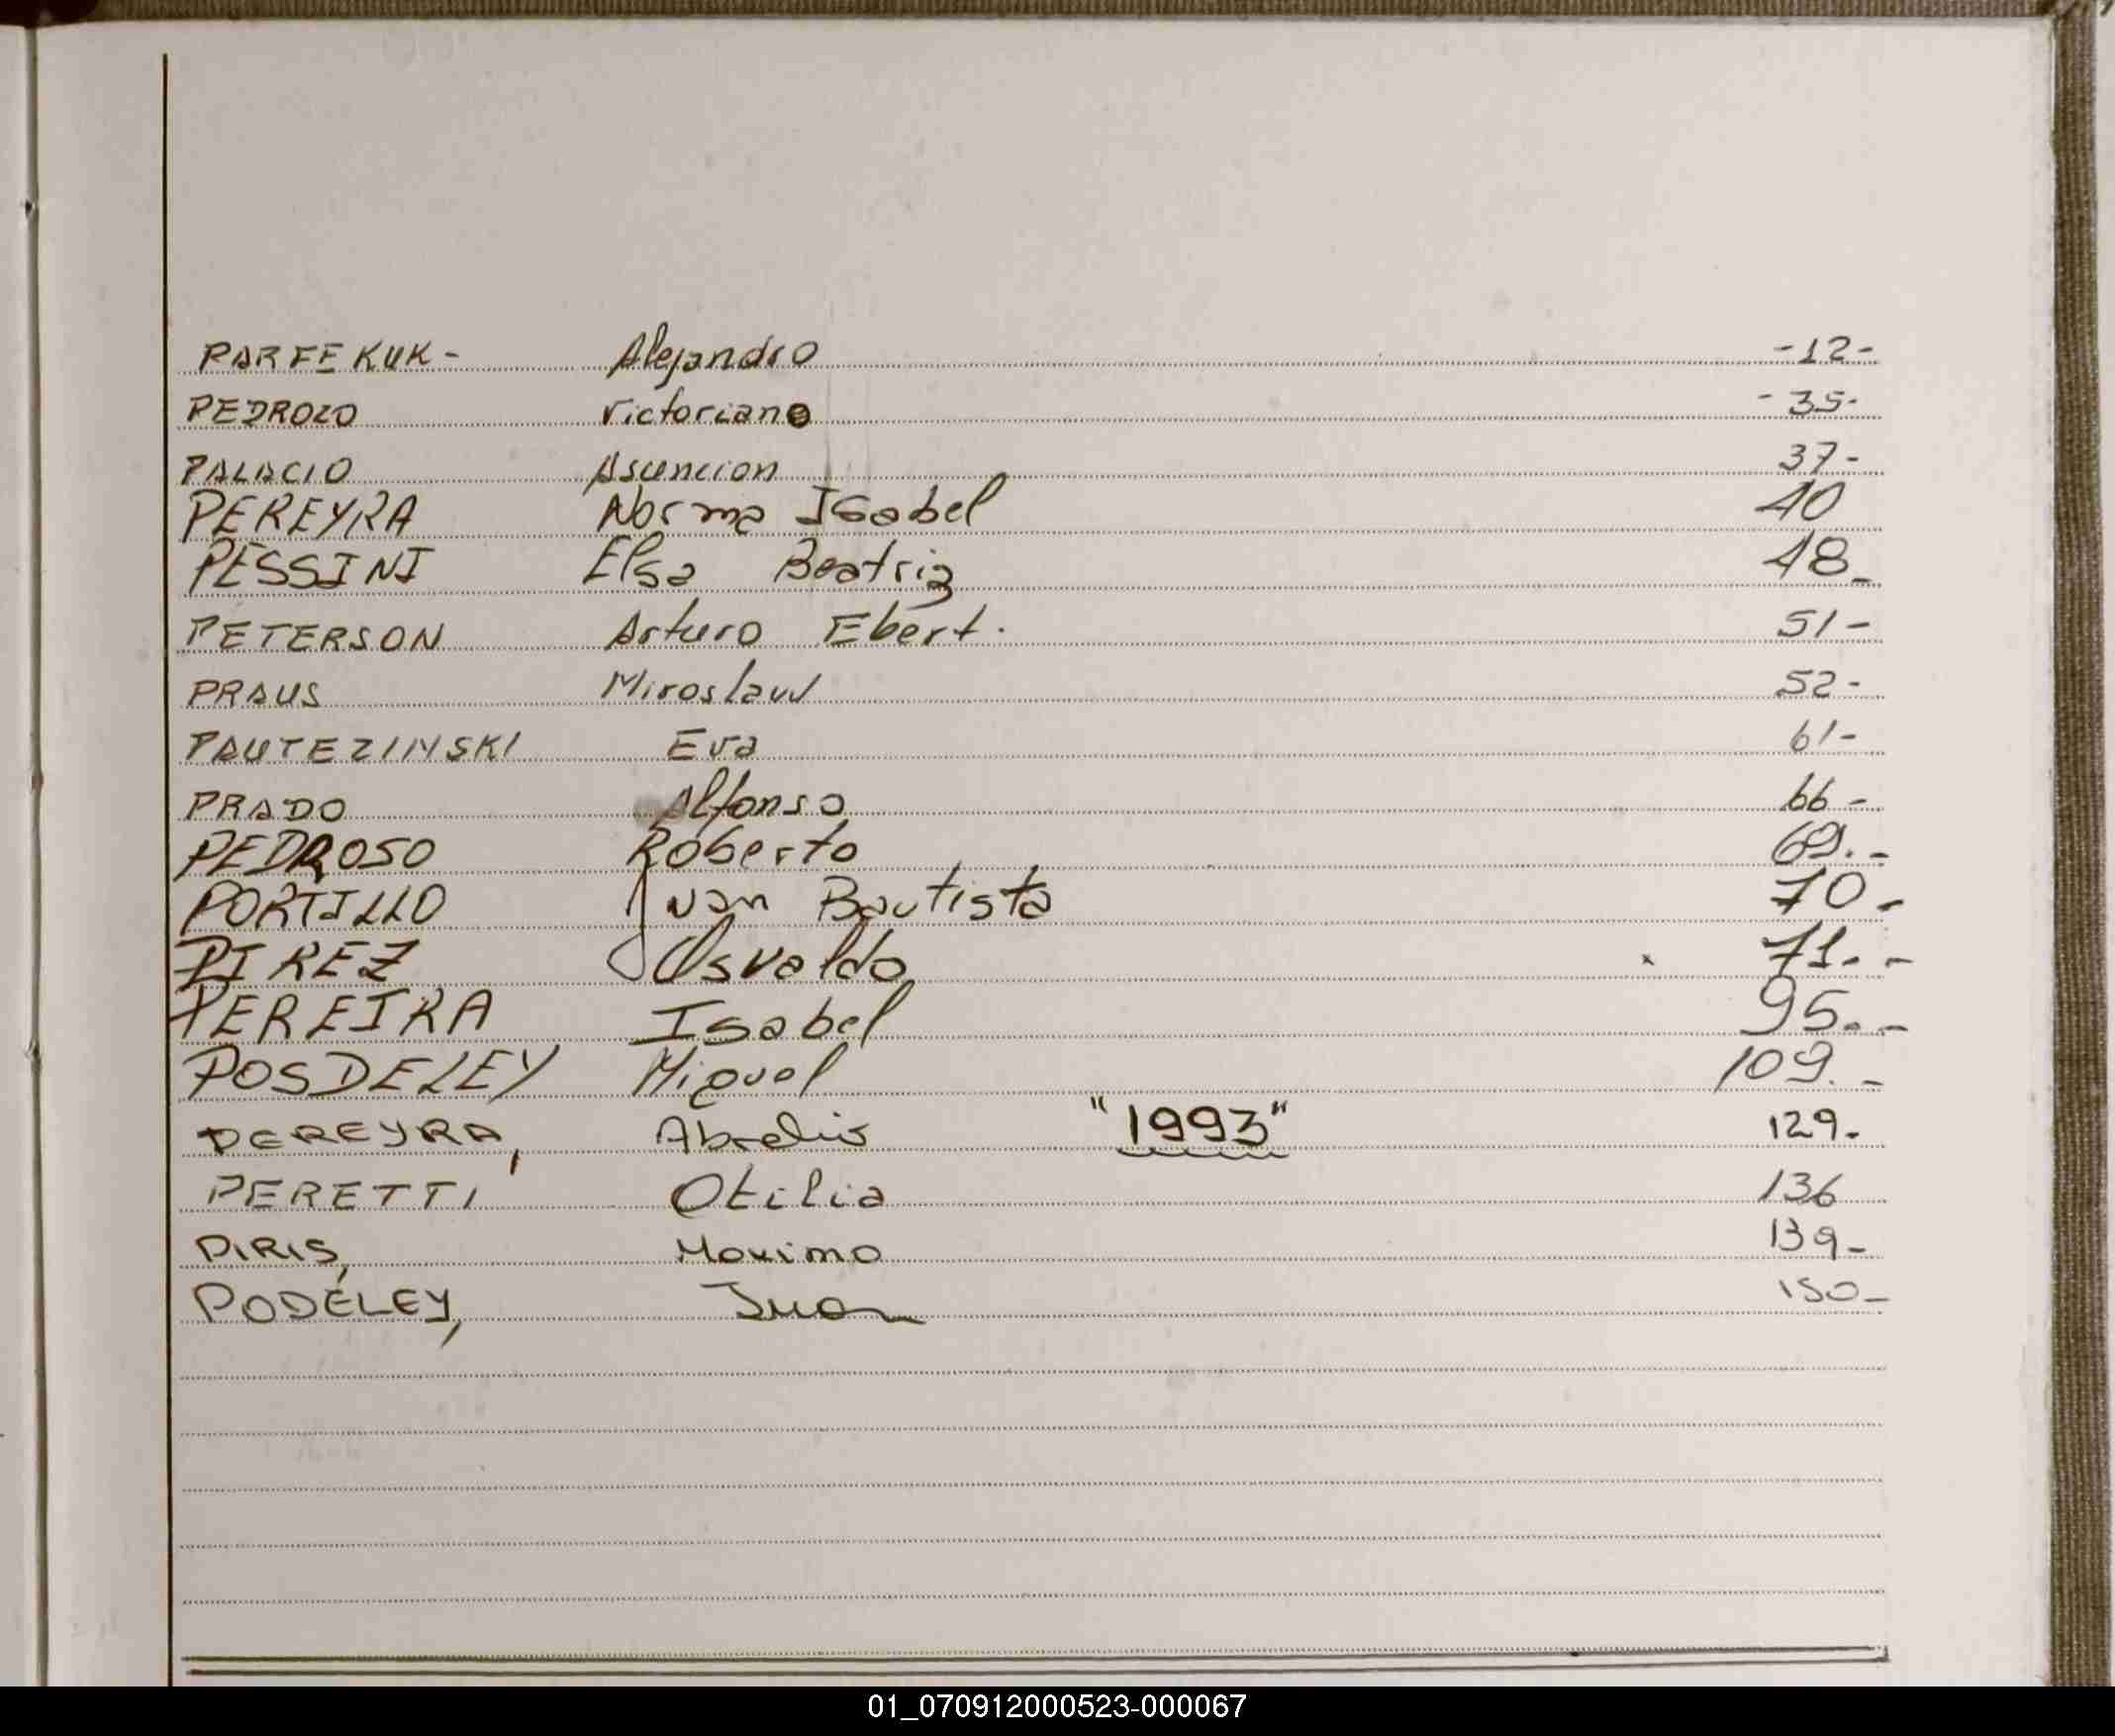 PARFEKUK- Alejandro -12-
PEDROZO Victoriano -35-
PALACIO Asuncion 37-
PEREYRA Norma ISabel 40
PESSINI Elsa Beatriz 48_
PETERSON Arturo Ebert. 51-
PRAUS Miroslaw 52-
PAUTEZINSKI Eva 61-
PRADO Alfonso 66-
PEDROSO Roberto 69.-
PORTILLO Juan Bautista 70.
PIREZ Osvaldo 71.-
PEREIRA Isabel 95.-
POSDELEY Miguel 109.-
PEREYRA, "1993" 129.
PERETTI Otilia 136
PIRIS, Maximo 139-
PODELEY, Juan 150-
01_070912000523-000067